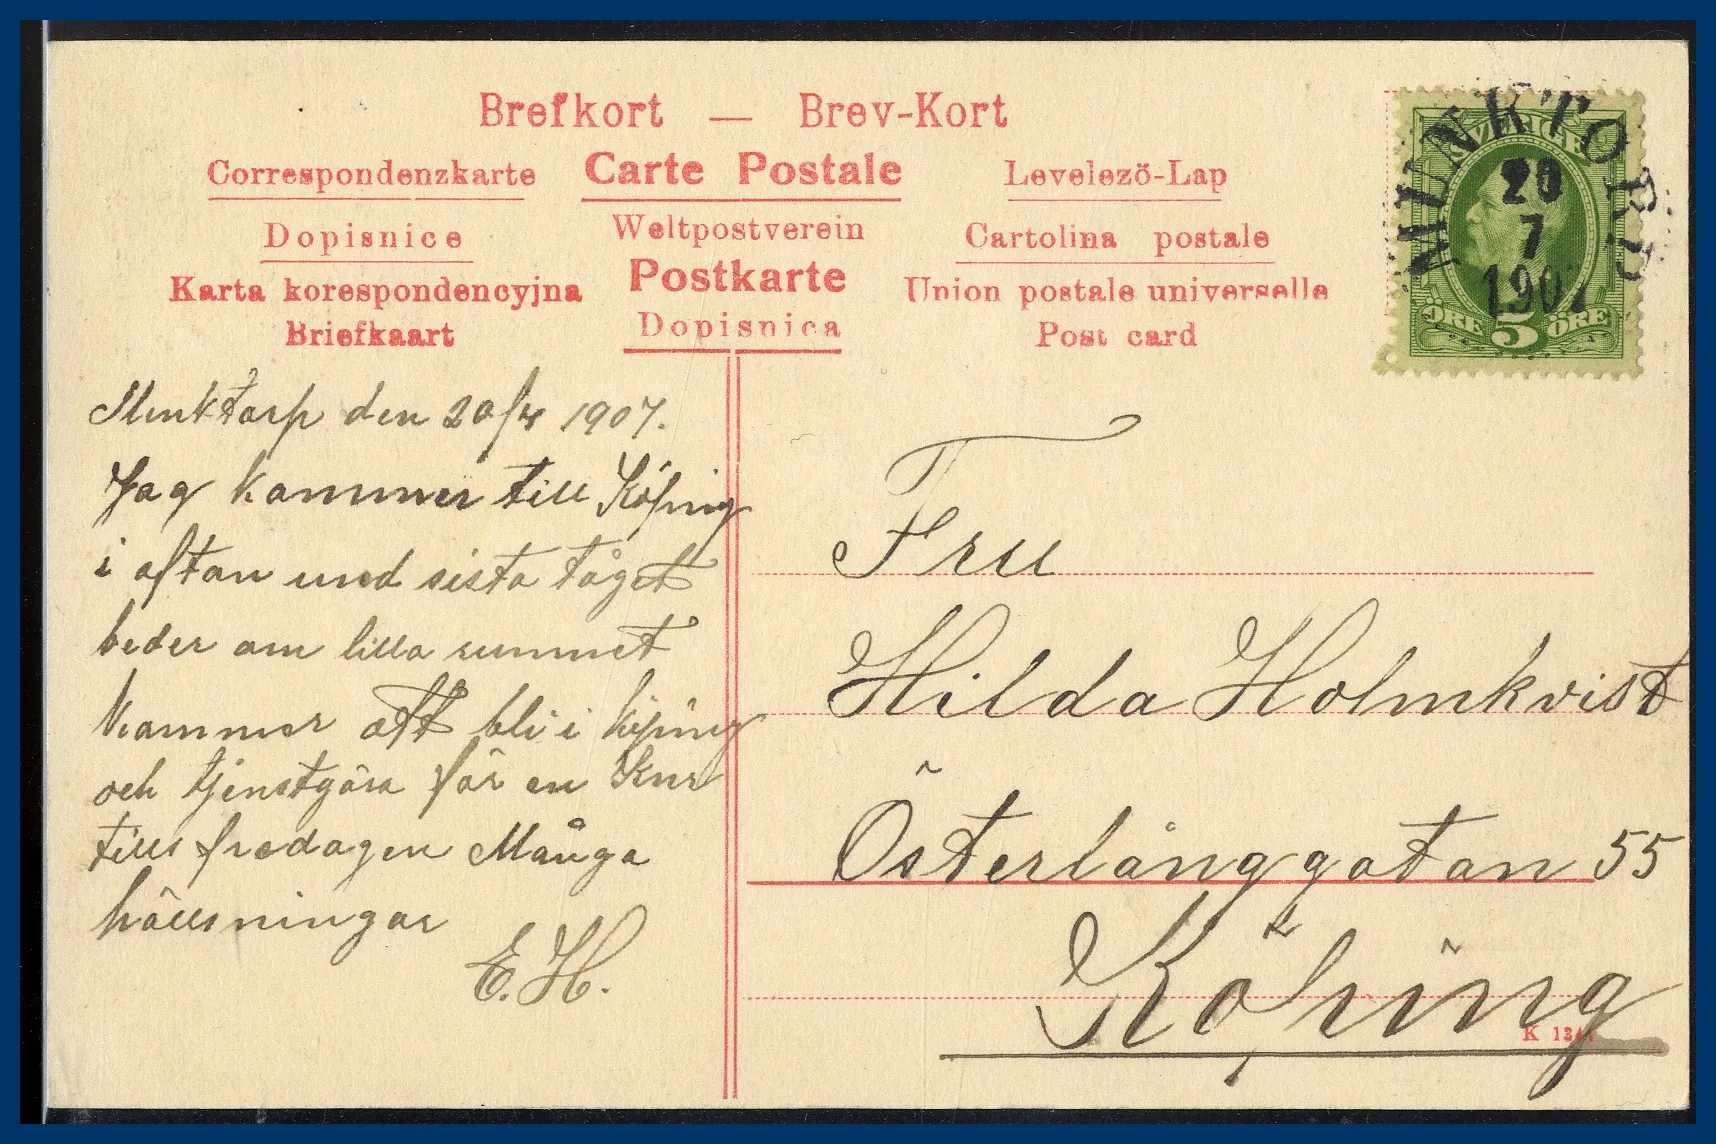 Brefkort — Brev-Kort
Correspondenzkarte Carte Postale Levelező-Lap
Dopisnice Weltpostverein Cartolina postale
Karta korespondencyjna Postkarte Union postale universelle
Briefkaart Dopisnica Post card
SVERIGE
5
ÖRE ÖRE
MUNKTORP
20
7
1907
Munktorp den 20/7 1907.
Jag kommer till Köping
i aftan med sista tåget
beder om lilla rummet
kommer att bli i köping
och tjenstgöra för en
tills fredagen Många
hällsningar
E.H.
Fru
Hilda Holmkvist
Österlånggatan 55
Köping